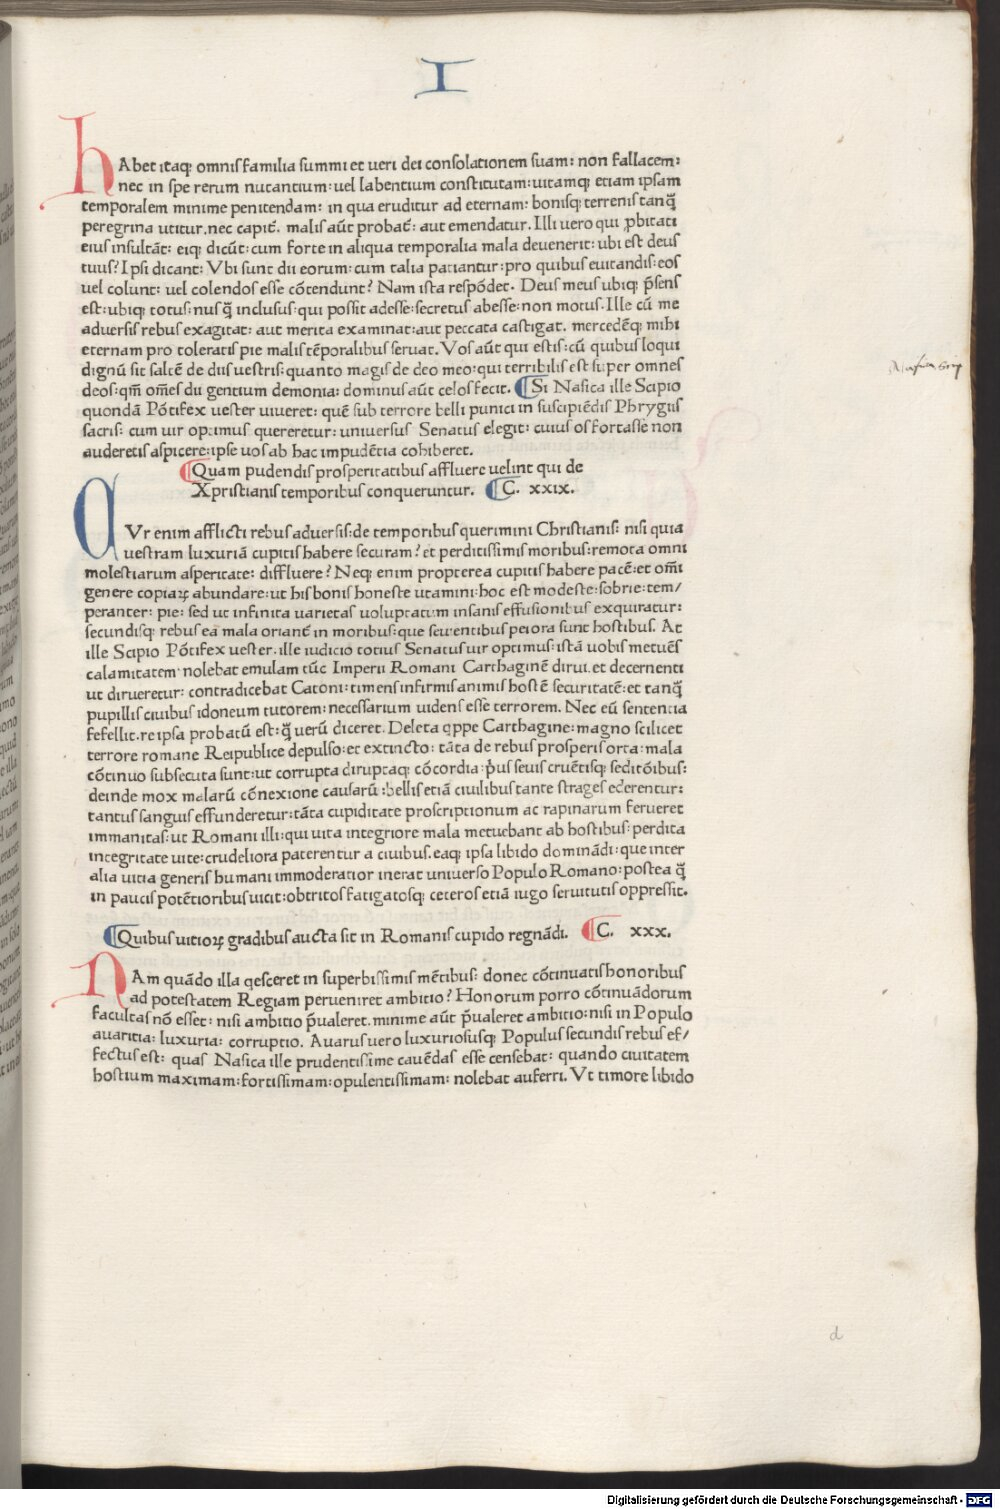 I
hAbet itaqꝫ omnis familia summi et ueri dei consolationem suam: non fallacem:
nec in spe rerum nutantium: uel labentium constitutam: uitamqꝫ etiam ipsam
temporalem minime penitendam: in qua eruditur ad eternam: bonisqꝫ terrenis tanq̄
peregrina utitur. nec capit᷑. malis aūt probat᷑: aut emendatur. Illi uero qui ꝓbitati
eius insultāt: eiqꝫ dicūt: cum forte in aliqua temporalia mala deuenerit: ubi est deus
tuus? Ipsi dicant: Vbi sunt dii eorum: cum talia patiantur: pro quibus euitandis: eos
uel colunt: uel colendos esse cōtendunt? Nam ista respōdet. Deus meus ubiqꝫ p̄sens
est: ubiqꝫ totus: nusq̄ inclusus: qui possit adesse: secretus abesse: non motus. Ille cū me
aduersis rebus exagitat: aut merita examinat: aut peccata castigat. mercedēqꝫ mihi
eternam pro toleratis pie malis tēporalibus seruat. Vos aūt qui estis: cū quibus loqui
dignū sit saltē de diis uestris: quanto magis de deo meo: qui terribilis est super omnes
deos: qm̄ om̄es dii gentium demonia: dominus aūt celos fecit. Si Nasica ille Scipio
quondā Pōtifex uester uiueret: quē sub terrore belli punici in suscipiēdis Phrygiis
sacris: cum uir optimus quereretur: uniuersus Senatus elegit: cuius os fortasse non
auderetis aspicere: ipse uos ab hac impudētia cohiberet.
Quam pudendis prosperitatibus affluere uelint qui de
Xpristianis temporibus conqueruntur. C. xxix.
CVr enim afflicti rebus aduersis: de temporibus querimini Christianis: nisi quia
uestram luxuriā cupitis habere securam? et perditissimis moribus: remota omni
molestiarum asperitate: diffluere? Neqꝫ enim propterea cupitis habere pacē: et om̄i
genere copiaꝝ abundare: ut his bonis honeste utamini: hoc est modeste: sobrie: tem/
peranter: pie: sed ut infinita uarietas uoluptatum insanis effusionibus exquiratur:
secundisqꝫ rebus ea mala oriant᷑ in moribus: que seuientibus peiora sunt hostibus. At
ille Scipio Pōtifex uester. ille iudicio totius Senatus uir optimus: istā uobis metuēs
calamitatem nolebat emulam tūc Imperii Romani Carthaginē dirui. et decernenti
ut dirueretur: contradicebat Catoni: timens infirmis animis hostē securitatē: et tanq̄
pupillis ciuibus idoneum tutorem: necessarium uidens esse terrorem. Nec eū sententia
fefellit. re ipsa probatū est: q̄ uerū diceret. Deleta qppe Carthagine: magno scilicet
terrore romane Reipublice depulso: et extincto: tāta de rebus prosperis orta: mala
cōtinuo subsecuta sunt: ut corrupta diruptaqꝫ cōcordia p̄us seuis cruētisqꝫ seditōibus:
deinde mox malarū cōnexione causarū: bellis etiā ciuilibus tante strages ederentur:
tantus sanguis effunderetur: tāta cupiditate proscriptionum ac rapinarum ferueret
immanitas: ut Romani illi: qui uita integriore mala metuebant ab hostibus: perdita
integritate uite: crudeliora paterentur a ciuibus. eaqꝫ ipsa libido dominādi: que inter
alia uitia generis humani immoderatior inerat uniuerso Populo Romano: postea q̄
in paucis potētioribus uicit: obtritos fatigatosqꝫ ceteros etiā iugo seruitutis oppressit.
Quibus uitioꝝ gradibus aucta sit in Romanis cupido regnādi. C. xxx.
NAm quādo illa qesceret in superbissimis mētibus: donec cōtinuatis honoribus
ad potestatem Regiam perueniret ambitio? Honorum porro cōtinuādorum
facultas nō esset: nisi ambitio p̄ualeret. minime aūt p̄ualeret ambitio: nisi in Populo
auaritia: luxuria: corruptio. Auarus uero luxuriosusqꝫ Populus secundis rebus ef/
fectus est: quas Nasica ille prudentissime cauēdas esse censebat: quando ciuitatem
hostium maximam: fortissimam: opulentissimam: nolebat auferri. Vt timore libido
d
Digitalisierung gefördert durch die Deutsche Forschungsgemeinschaft - DFG